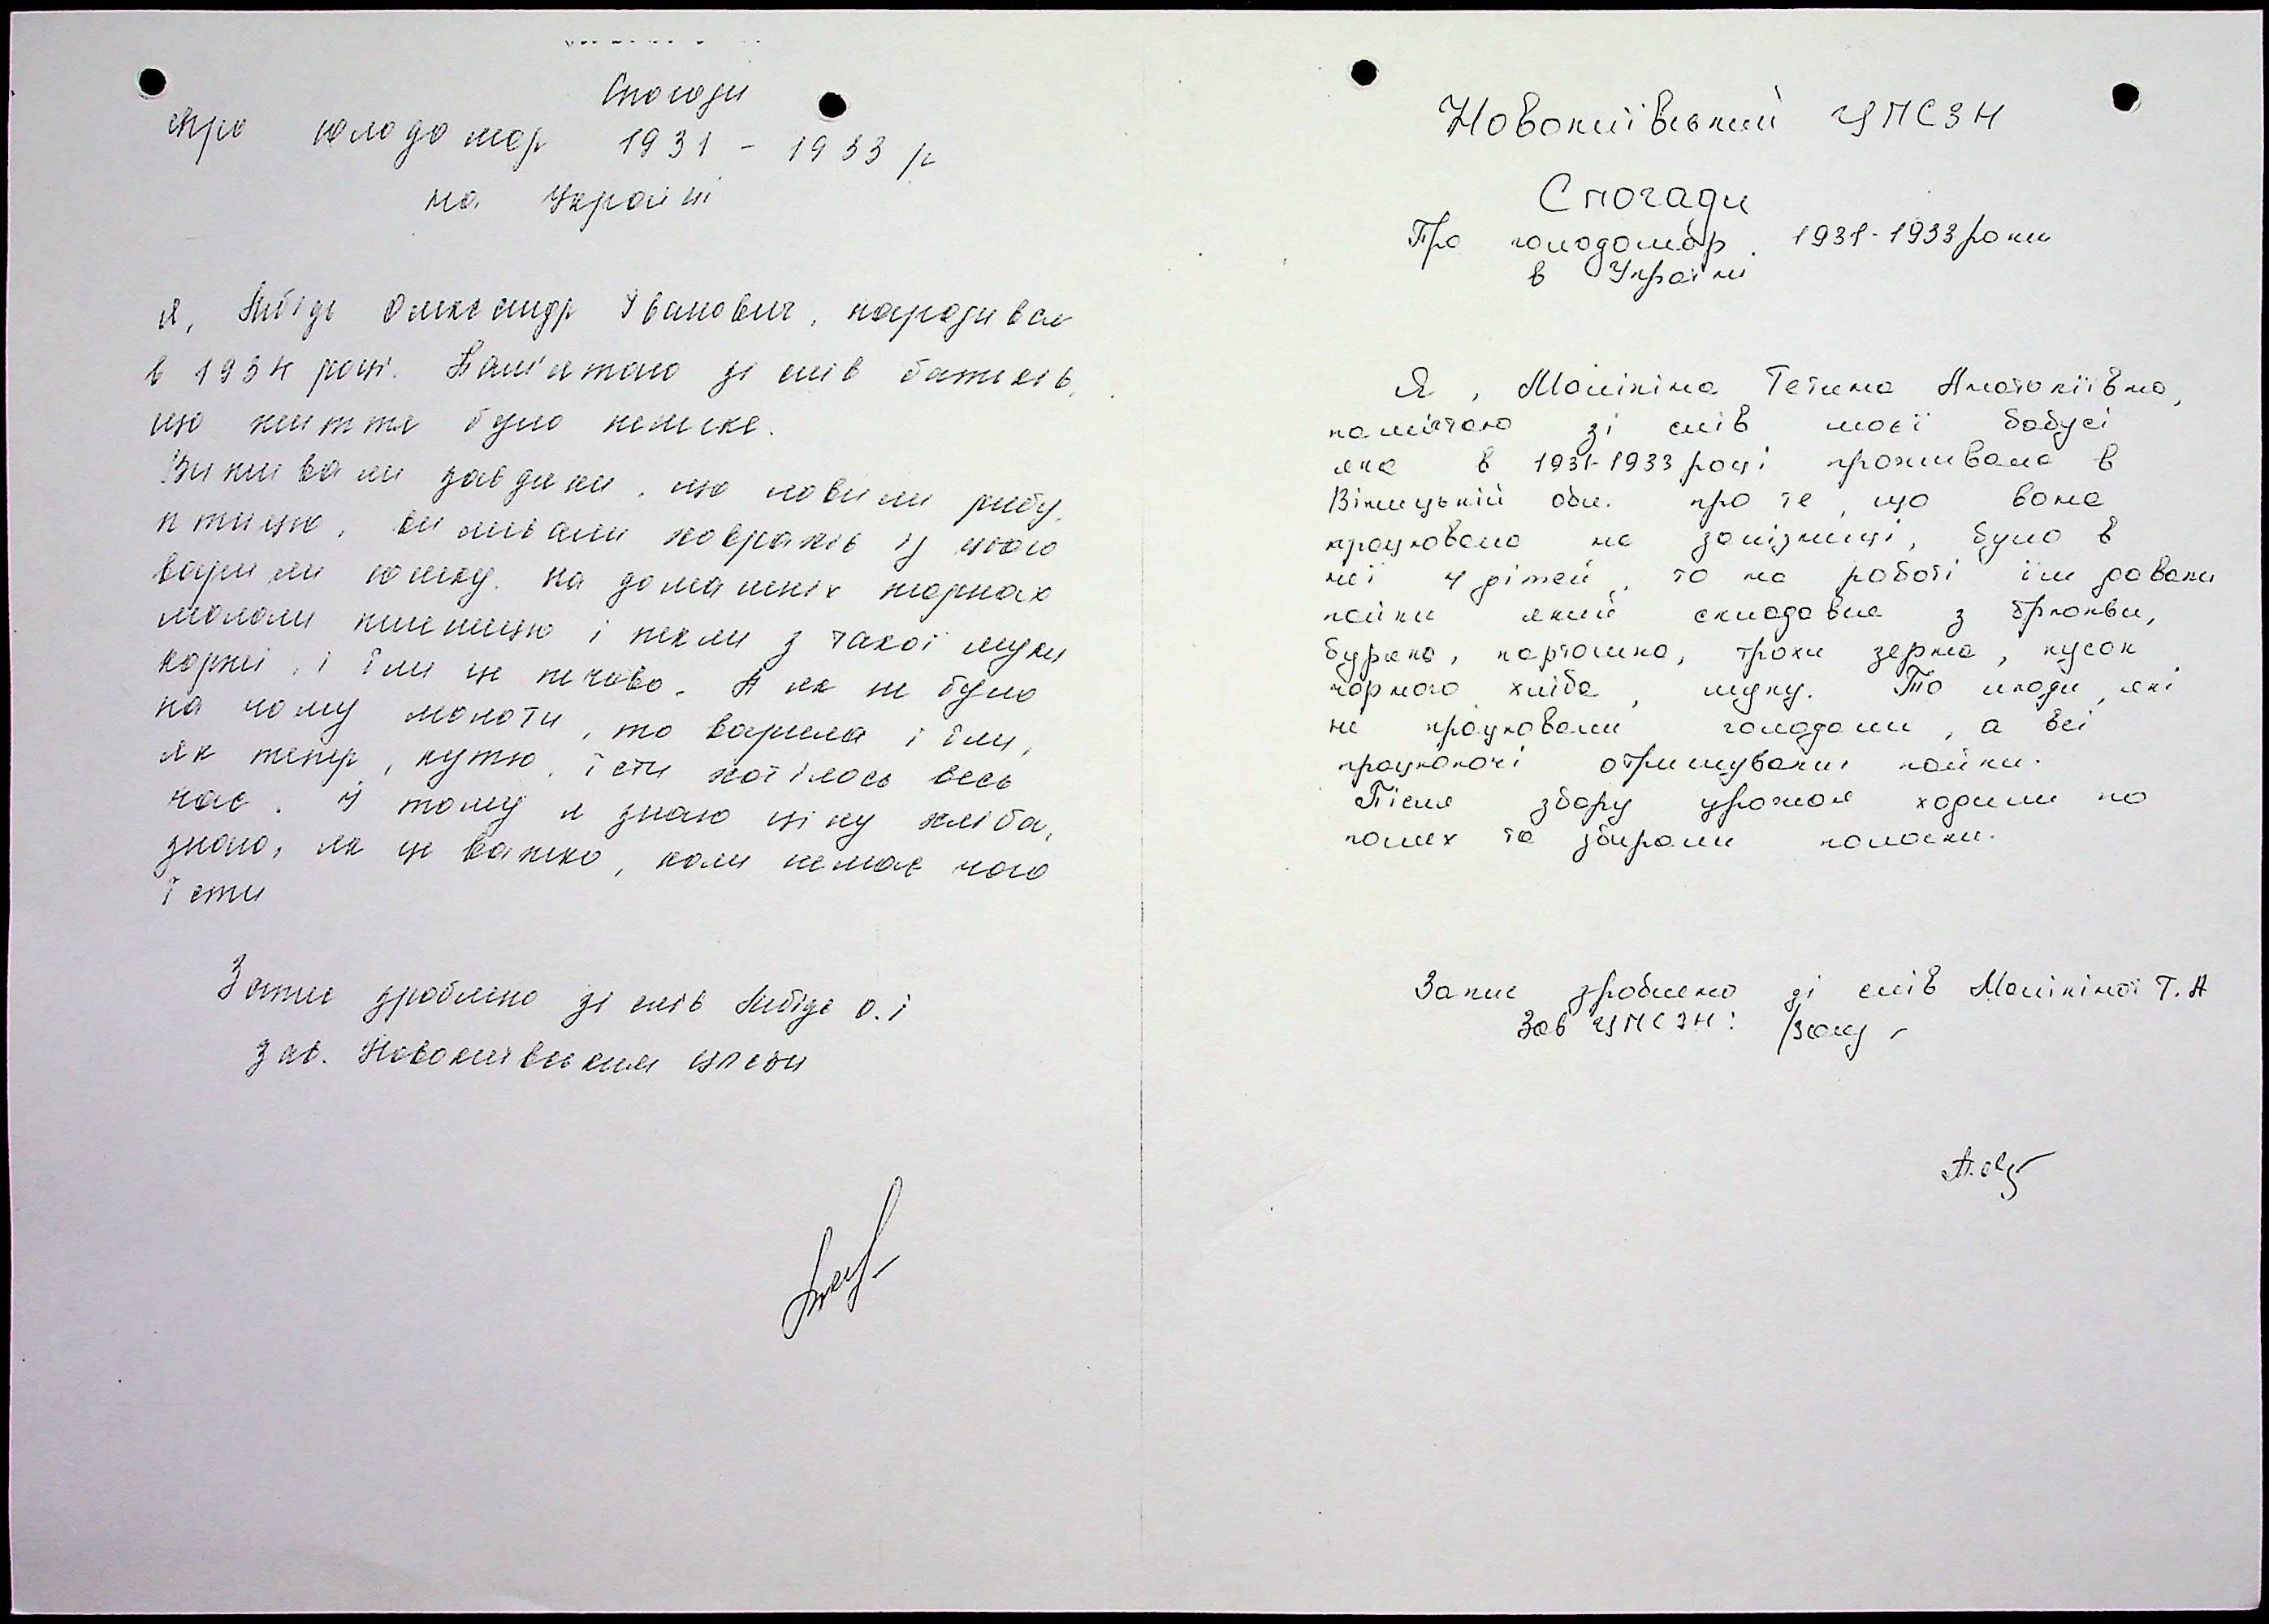 Спогади
про голодомор 1931 - 1933 р
на Україні
Я, Либідь Олександр Іванович, народився
в 1934 році. Пам'ятаю зі слів батьків,
що життя було нелегке.
Виживали завдяки, що ловили рибу,
птицю, виливали ховрахів із цього
варили юшку. На домашніх жорнах
мололи пшеницю і пекли з такої муки
коржі, і їли це печиво. А як не було
на чому молоти, то варили і їли,
як тепер, кутю. Їсти хотілось весь
час. І тому я знаю ціну хліба,
знаю, як це важко, коли немає чого
їсти
Запис зроблено зі слів Либідь О.І
Зав. Новокиївським ЦПСЗН
Новокиївський ЦПСЗН
Спогади
Про голодомор 1931-1933 роки
в Україні
Я, Моцікіна Тетяна Анатоліївна,
памятаю зі слів моєї бабусі
яка в 1931-1933 році проживала в
Вінницькій обл. про те, що вона
працювала на залізниці, було в
неї 4 дітей, то на роботі їм давали
пайки який складався з брюкви,
буряка, картошка, трохи зерна, кусок
чорного хліба, муку. То люди, які
не працювали голодали, а всі
працюючі отримували пайки.
Після збору урожая ходили по
полях та збирали колоски.
Запис зроблено зі слів Моцікіної Т.А
Зав ЦПСЗН: